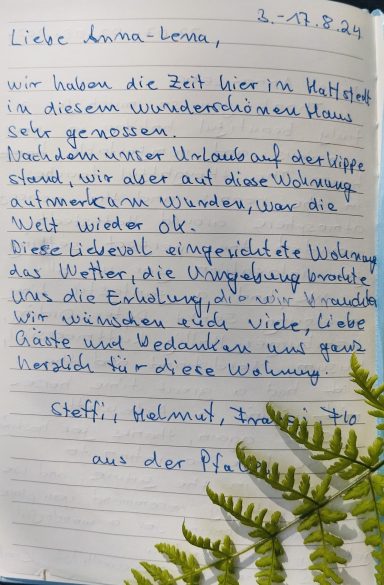 3.-17.8.24
Liebe Anna-Lena,
wir haben die Zeit hier in Hattstedt
in diesem wunderschönen Haus
sehr genossen.
Nachdem unser Urlaub auf der Kippe
stand, wir aber auf diese Wohnung
aufmerksam wurden, war die
Welt wieder ok.
Diese Liebevoll eingerichtete Wohnung
das Wetter, die Umgebung brachte
uns die Erholung, die wir brauchten
Wir wünschen euch viele, liebe
Gäste und bedanken uns ganz
herzlich für diese Wohnung.
Steffi, Helmut, Flo
aus der